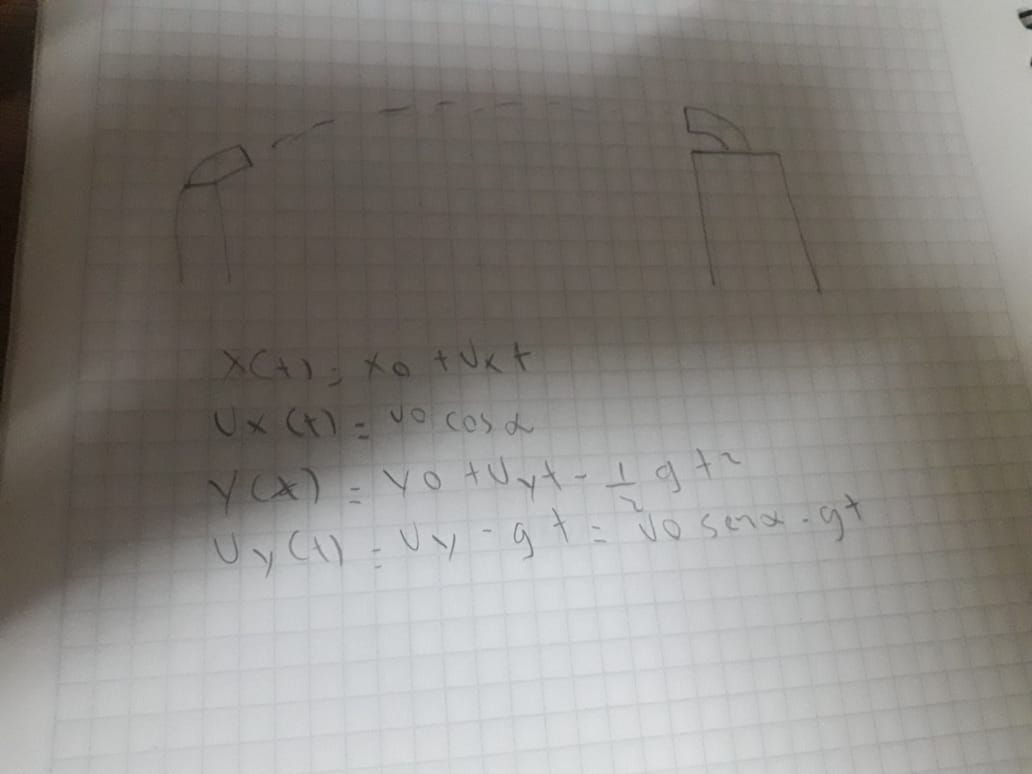 x(t) = x0 + Vx t
Vx (t) = V0 cos α
Y(x) = Y0 + Vyt - 1/2 g t²
Vy(t) = Vy - g t = V0 sen α - gt